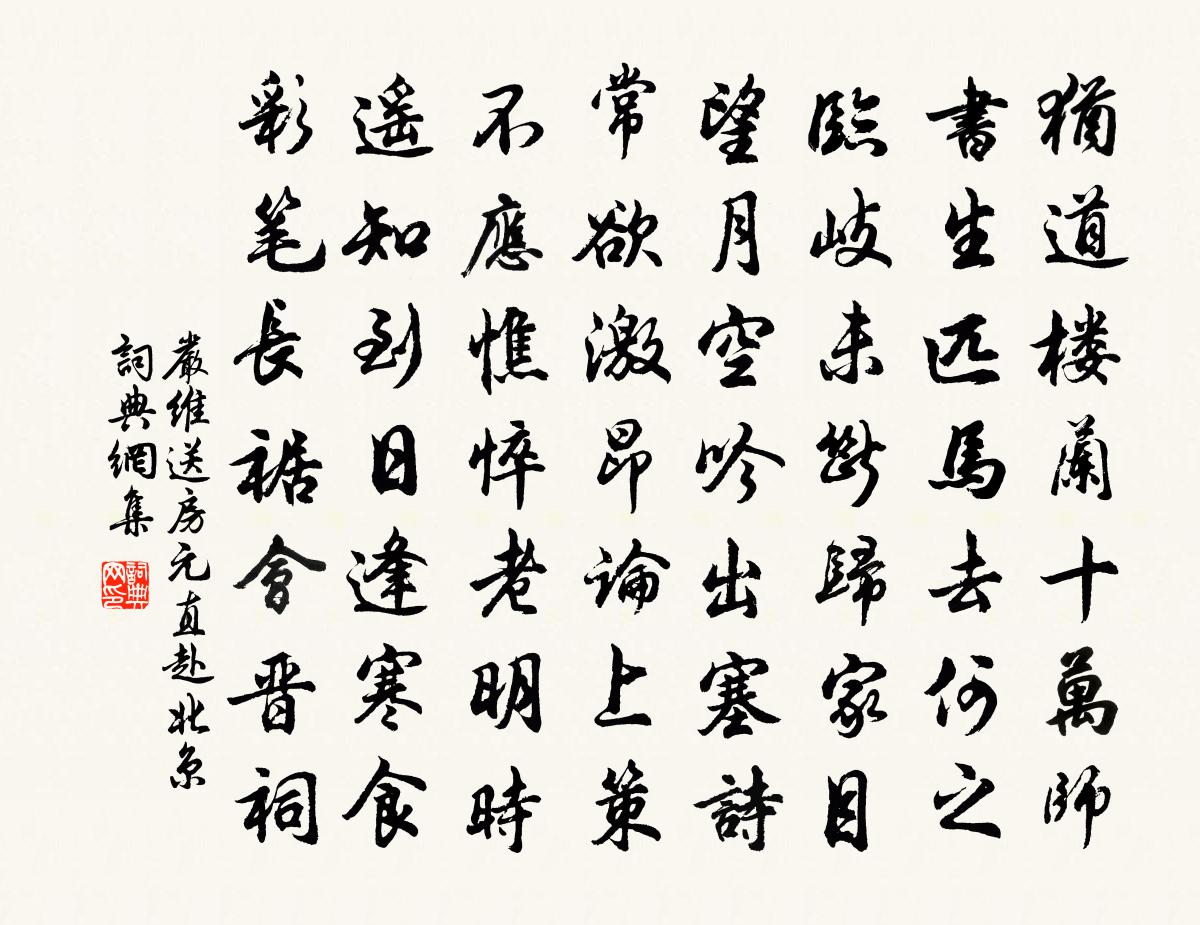 猶道楼蘭十萬師
書生匹馬去何之
臨岐未斷歸家目
望月空吟出塞詩
常欲激昂論上策
不應憔悴老明時
遥知到日逢寒食
彩笔長裾會晋祠
嚴維送房元直赴北京
詞典網集
詞典网印